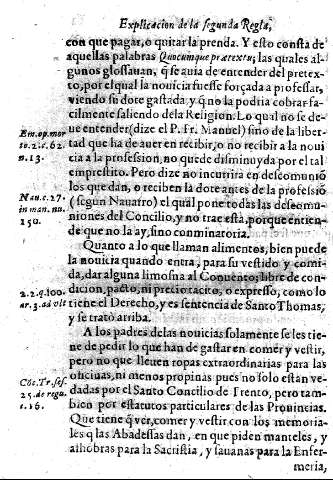 Explicacion de la segunda Regla,
con que pagar, o quitar la prenda. Y esto consta de
aquellas palabras Quocumque prætextu; las quales al-
gunos glossauan, q̃ se auia de entender del pretex-
to, por el qual la nouicia fuesse forçada a professar,
viendo su dote gastada, y q̃ no la podria cobrar fa-
cilmente saliendo dela Religion. Lo qual no se de-
ue entender (dize el P. Fr. Manuel) sino de la liber-
tad que ha de auer en recibir, o no recibir a la noui
cia a la profession, no quede disminuyda por el tal
emprestito. Pero dize no incurrira en descomunió
los que dan, o reciben la dote antes de la professió
(segun Nauarro) el qual pone todas las descomu-
niones del Concilio, y no trae esta, porque entien-
de que no la ay, sino conminatoria.
Quanto a lo que llaman alimentos, bien puede
la nouicia quando entra, para su vestido y comi-
da, dar alguna limosna al Conuento; libre de con-
dicion, pacto, ni precio tacito, o expresso, como lo
tiene el Derecho, y es sentencia de Santo Thomas;
y se trato arriba.
A los padres delas nouicias solamente se les tie-
ne de pedir lo que han de gastar en comer y vestir,
pero no que lleuen ropas extraordinarias para las
oficinas, ni menos propinas pues no solo están ve-
dadas por el Santo Concilio de Trento, pero tam-
bien por estatutos particulares de las Prouincias.
Que tiene q̃ ver, comer y vestir con los memoria-
les q̃ las Abadessas dan, en que piden manteles, y
alhobras para la Sacristia, y sauanas para la Enfer-
meria,
Em. op. mor
to. 2. c. 62.
n. 13.
Nau. c. 27.
in man. nu.
150.
2. 2. q. 100.
ar. 3. ad vlt
Cõc. Tr. ses.
25. de regu.
c. 16.